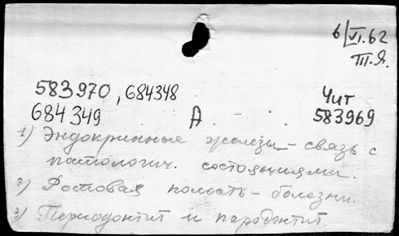 6/VI.62
Т.Я.
583970, 684348
Чит
684349
А
583969
1) Эндокринные железы - связь с
патологич. состояниями.
2) Ротовая полость - болезни.
3) Периодонтит и пародонтит.